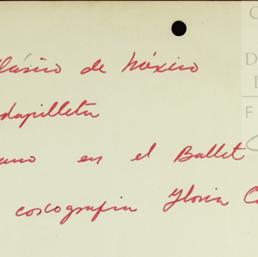 lásico de México
dapilleta
ano en el Ballet
coreografia Gloria C
C
D
F